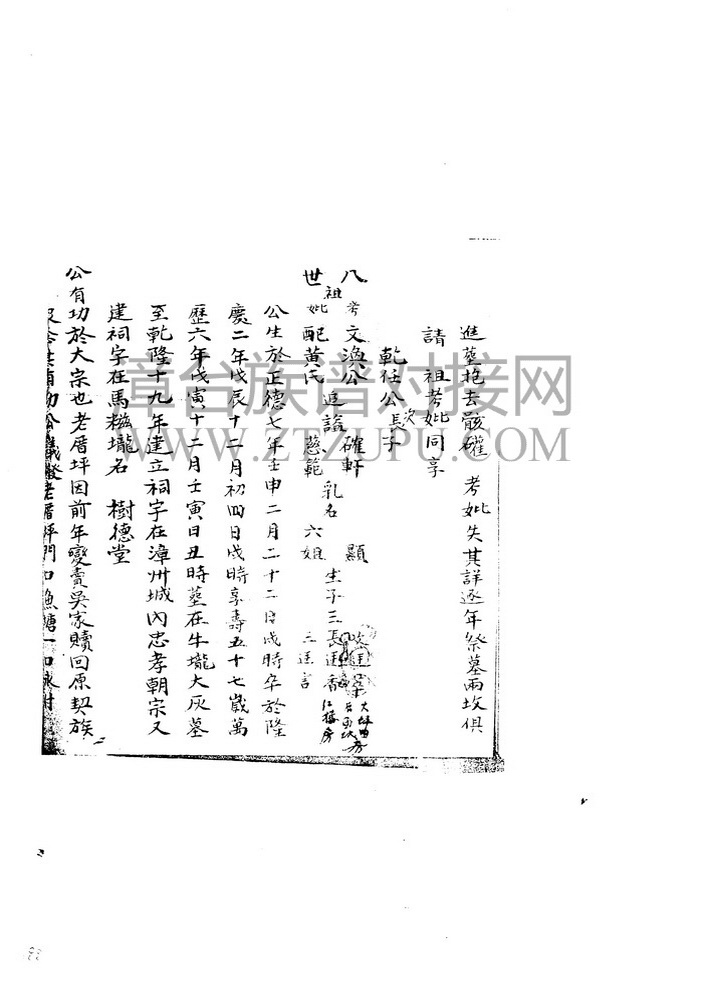 進墓抱去骸礶 考妣失其詳逐年祭墓兩坟俱
請 祖考妣同享
乾任公長次子
八世祖
考文渙公 追諡 確軒 乳名 顯
妣配黃氏 慈範 六娘 生子三 長廷香 江樓房
三廷言
公生於正德七年壬申二月二十二日戌時卒於隆
慶二年戊辰十二月初四日戌時享壽五十七歲萬
歷六年戊寅十二月壬寅日丑時墓在牛壠大灰墓
至乾隆十九年建立祠宇在漳州城內忠孝朝宗又
建祠宇在馬糍壠名 樹德堂
公有功於大宗也老厝坪因前年變賣吳家贖回原契族
老厝坪門口魚塘一口永付
章台族谱对接网
WWW.ZTZUPU.COM